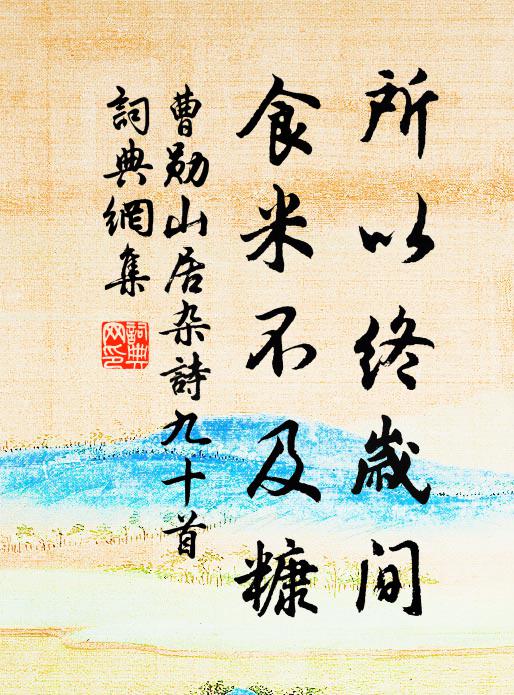 所以终歲间
食米不及糠
曹勋山居杂詩九十首
詞典網集
詞典网印